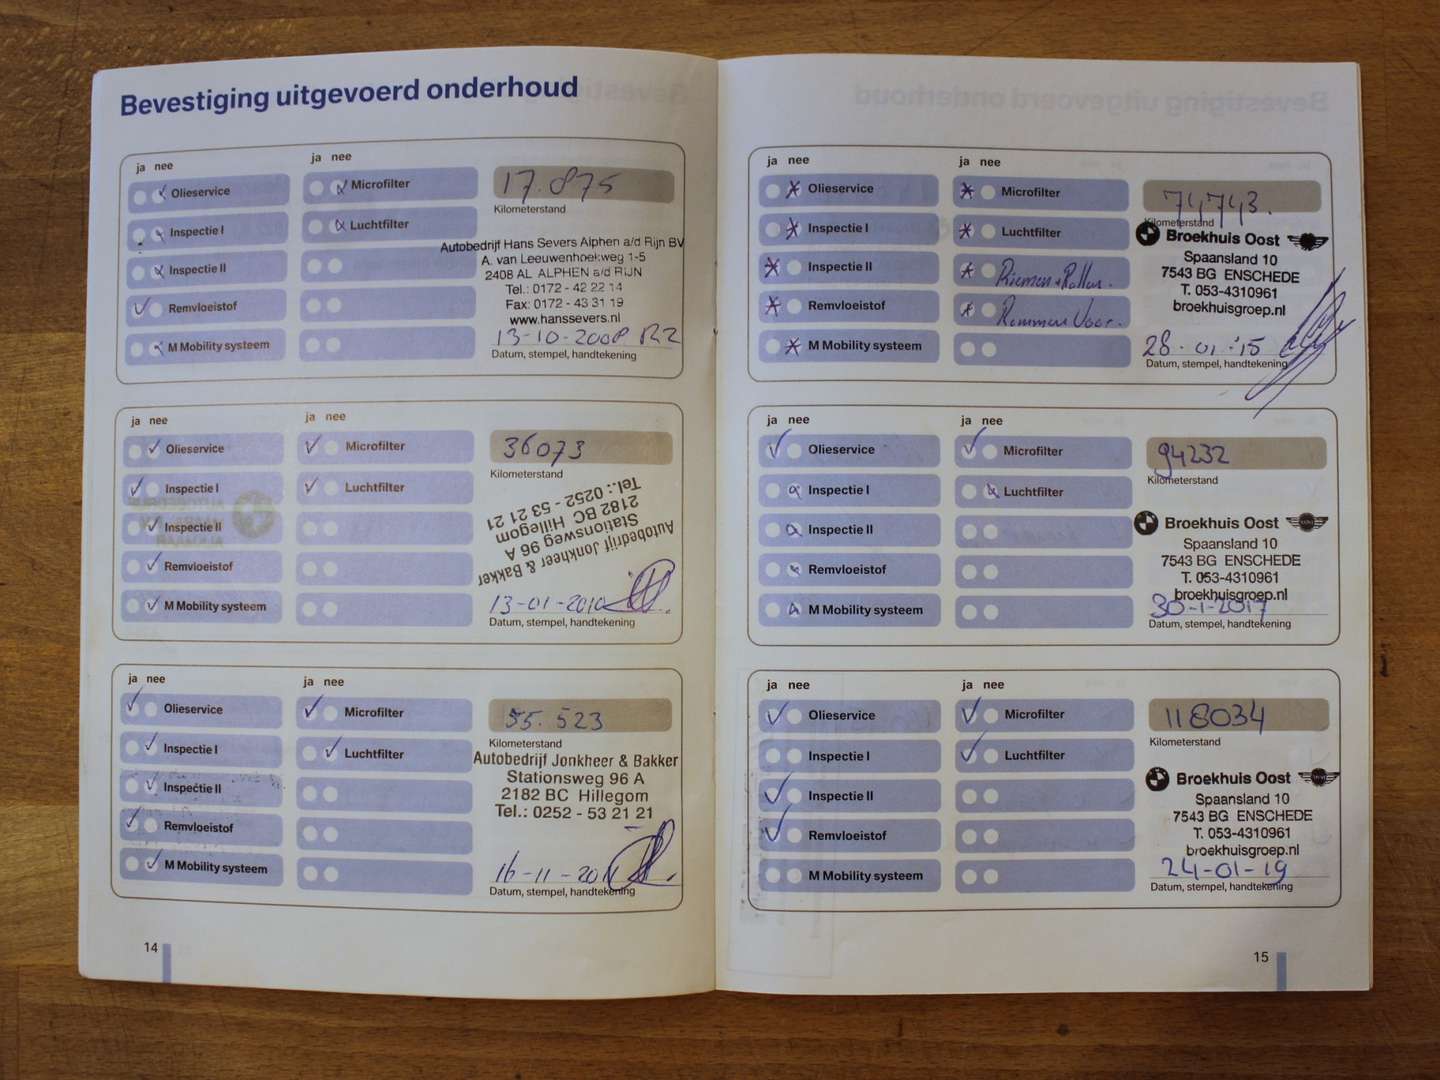 Bevestiging uitgevoerd onderhoud
ja nee
ja nee
Olieservice
Microfilter
17.875
Kilometerstand
Inspectie I
Luchtfilter
Autobedrijf Hans Severs Alphen a/d Rijn BV
A. van Leeuwenhoekweg 1-5
Inspectie II
2408 AL ALPHEN a/d RIJN
Tel.: 0172 - 42 22 14
Remvloeistof
Fax: 0172 - 43 31 19
www.hanssevers.nl
M Mobility systeem
13-10-2008
Datum, stempel, handtekening
ja nee
ja nee
Olieservice
Microfilter
36073
Kilometerstand
Inspectie I
Luchtfilter
Inspectie II
Remvloeistof
M Mobility systeem
Autobedrijf Jonkheer & Bakker
Stationsweg 96 A
2182 BC Hillegom
Tel.: 0252 - 53 21 21
13-01-2010
Datum, stempel, handtekening
ja nee
ja nee
Olieservice
Microfilter
55.523
Kilometerstand
Inspectie I
Luchtfilter
Autobedrijf Jonkheer & Bakker
Stationsweg 96 A
Inspectie II
2182 BC Hillegom
Tel.: 0252 - 53 21 21
Remvloeistof
M Mobility systeem
16-11-2011
Datum, stempel, handtekening
14
ja nee
ja nee
Olieservice
Microfilter
74743.
Kilometerstand
Inspectie I
Luchtfilter
Broekhuis Oost
Spaansland 10
Inspectie II
Riemen + Rollen.
7543 BG ENSCHEDE
T. 053-4310961
Remvloeistof
Remmen Voor.
broekhuisgroep.nl
M Mobility systeem
28-01-'15
Datum, stempel, handtekening
ja nee
ja nee
Olieservice
Microfilter
94232
Kilometerstand
Inspectie I
Luchtfilter
Broekhuis Oost
Inspectie II
Spaansland 10
7543 BG ENSCHEDE
Remvloeistof
T. 053-4310961
broekhuisgroep.nl
M Mobility systeem
30-1-2017
Datum, stempel, handtekening
ja nee
ja nee
Olieservice
Microfilter
118034
Kilometerstand
Inspectie I
Luchtfilter
Broekhuis Oost
Inspectie II
Spaansland 10
7543 BG ENSCHEDE
Remvloeistof
T. 053-4310961
broekhuisgroep.nl
M Mobility systeem
24-01-19
Datum, stempel, handtekening
15